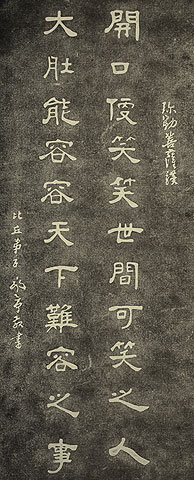 弥勒菩薩讚
開口便笑笑世間可笑之人
大肚能容容天下難容之事
比丘 書